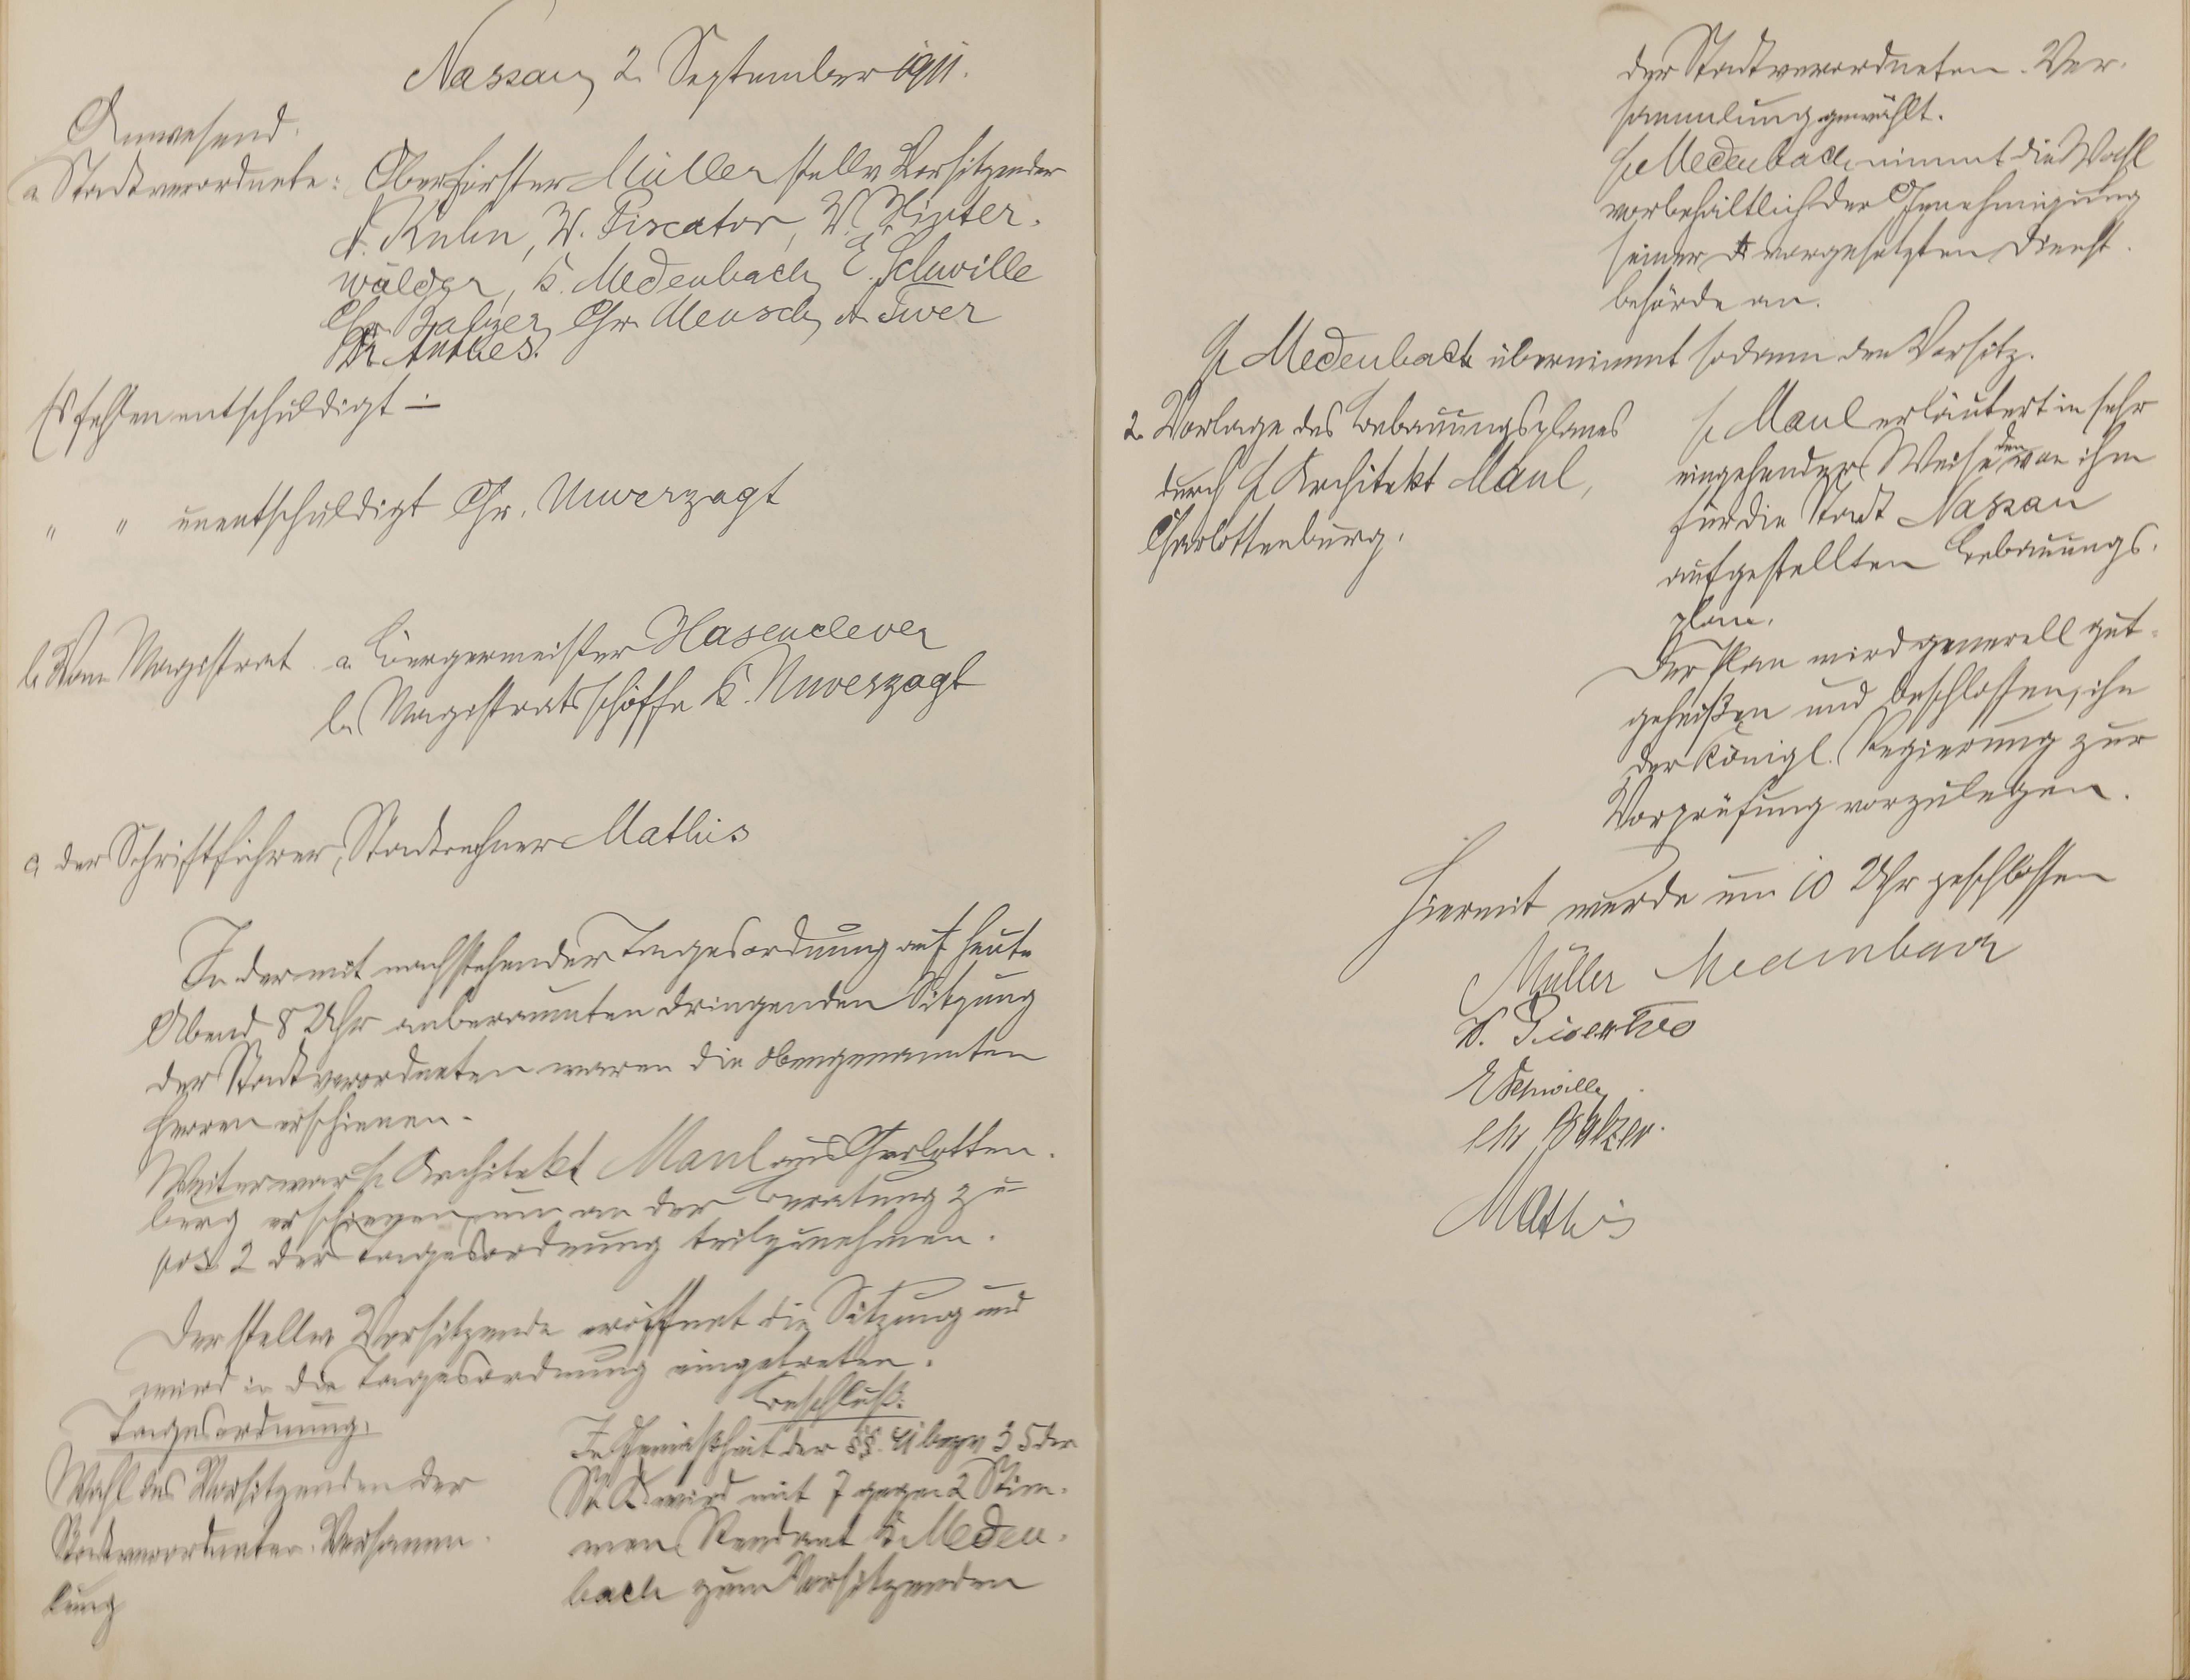 Nassau, 2. September 1911.
Anwesend.
a Stadtverordnete: Oberförster Müller stellv Vorsitzender
A. Kuhn, W. Piscator, W. Hinter-
wälder, K. Medenbach, E. Schwille
Chr. Balzer, Chr. Mensch, A. Twer
Dr. Anthes.
Es fehlen entschuldigt –
" " unentschuldigt Chr. Unverzagt
b. Vom Magistrat a. Bürgermeister Hasenclever
b. Magistratsschöffe K. Unverzagt
c der Schriftführer, Stadtrechner Mathis
In der mit nachstehender Tagesordnung auf heute
Abend 8 Uhr anberaumten dringenden Sitzung
der Stadtverordneten waren die obengenannten
Herren erschienen.
Weiter war H. Architekt Maul aus Charlotten-
burg erschienen, um an der Beratung zu
pos 2 der Tagesordnung teilzunehmen.
Der stellv Vorsitzende eröffnet die Sitzung und
wird in die Tagesordnung eingetreten.
Tagesordnung.
Wahl des Vorsitzenden der
Stadtverordneten-Versamm-
lung
Beschluß:
In Gemäßheit der §§. 41 bezw 35 der
St. O. wird mit 7 gegen 2 Stim-
men Rendant K. Meden-
bach zum Vorsitzenden
der Stadtverordneten-Ver-
sammlung gewählt.
H. Medenbach nimmt die Wahl
vorbehaltlich der Genehmigung
seiner vorgesetzten Dienst-
behörde an.
H Medenbach übernimmt sodann den Vorsitz.
2. Vorlage des Bebauungsplanes
durch H Architekt Maul,
Charlottenburg.
H. Maul erläutert in sehr
eingehender Weise den von ihm
für die Stadt Nassau
aufgestellten Bebauungs-
plan.
Der Plan wird generell gut-
geheißen und beschlossen, ihn
der Königl. Regierung zur
Vorprüfung vorzulegen.
Hiermit wurde um 10 Uhr geschlossen
Müller Medenbach
W. Piscator
E Schwille
Chr Balzer.
Mathis